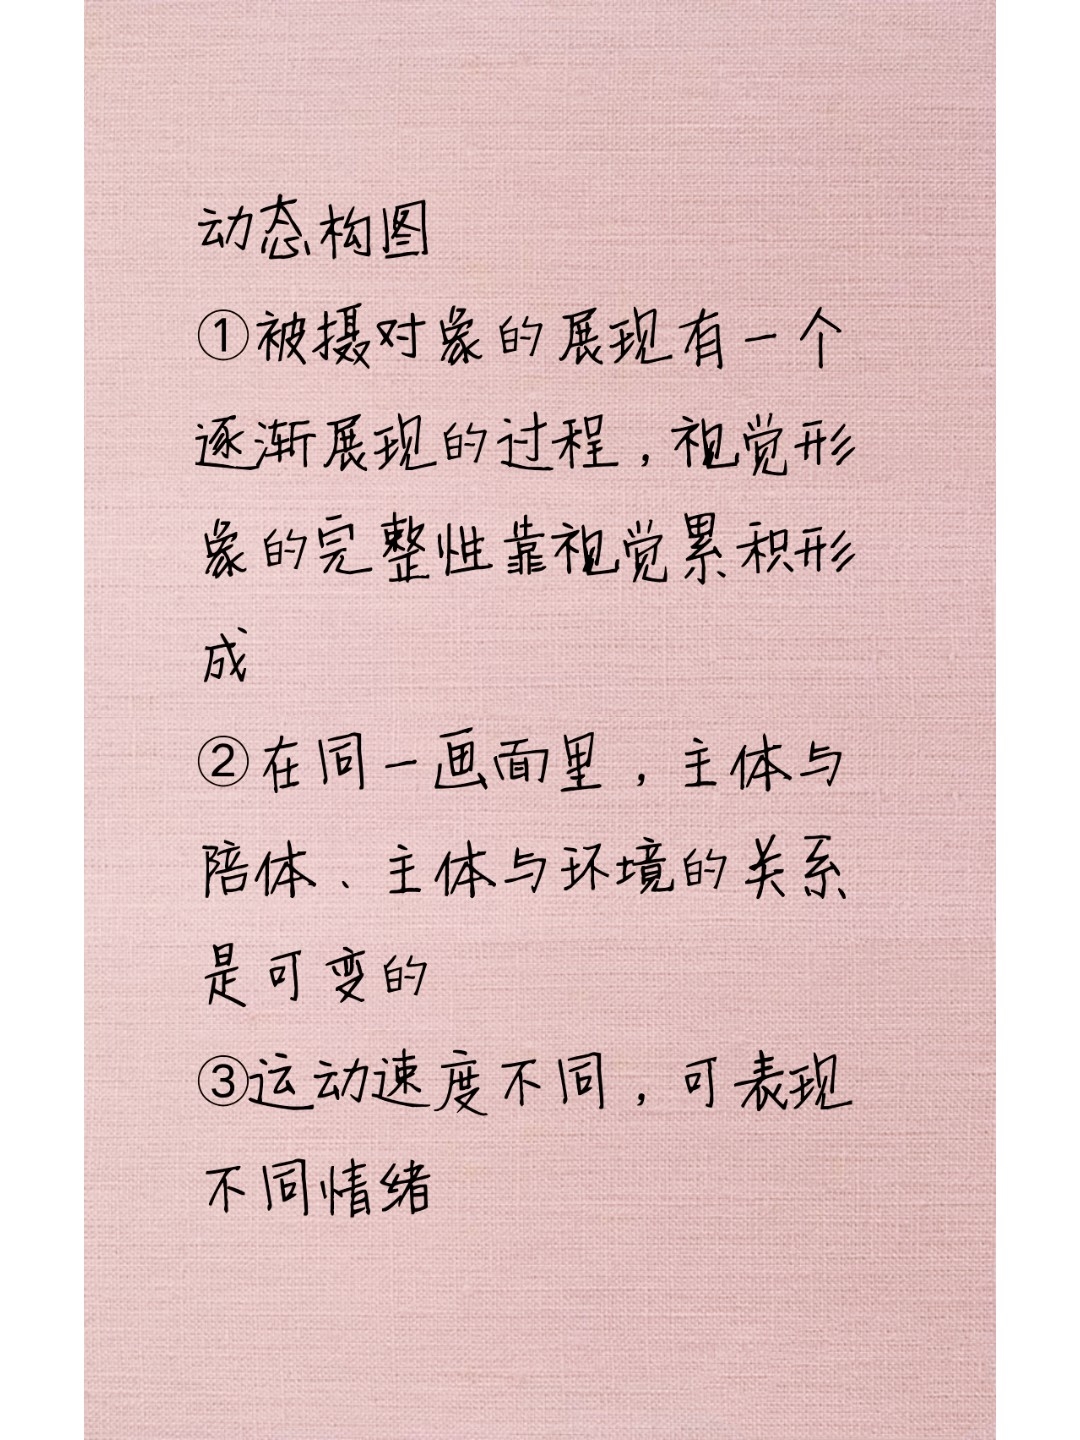 动态构图
①被摄对象的展现有一个
逐渐展现的过程，视觉形
象的完整性靠视觉累积形
成
②在同一画面里，主体与
陪体、主体与环境的关系
是可变的
③运动速度不同，可表现
不同情绪